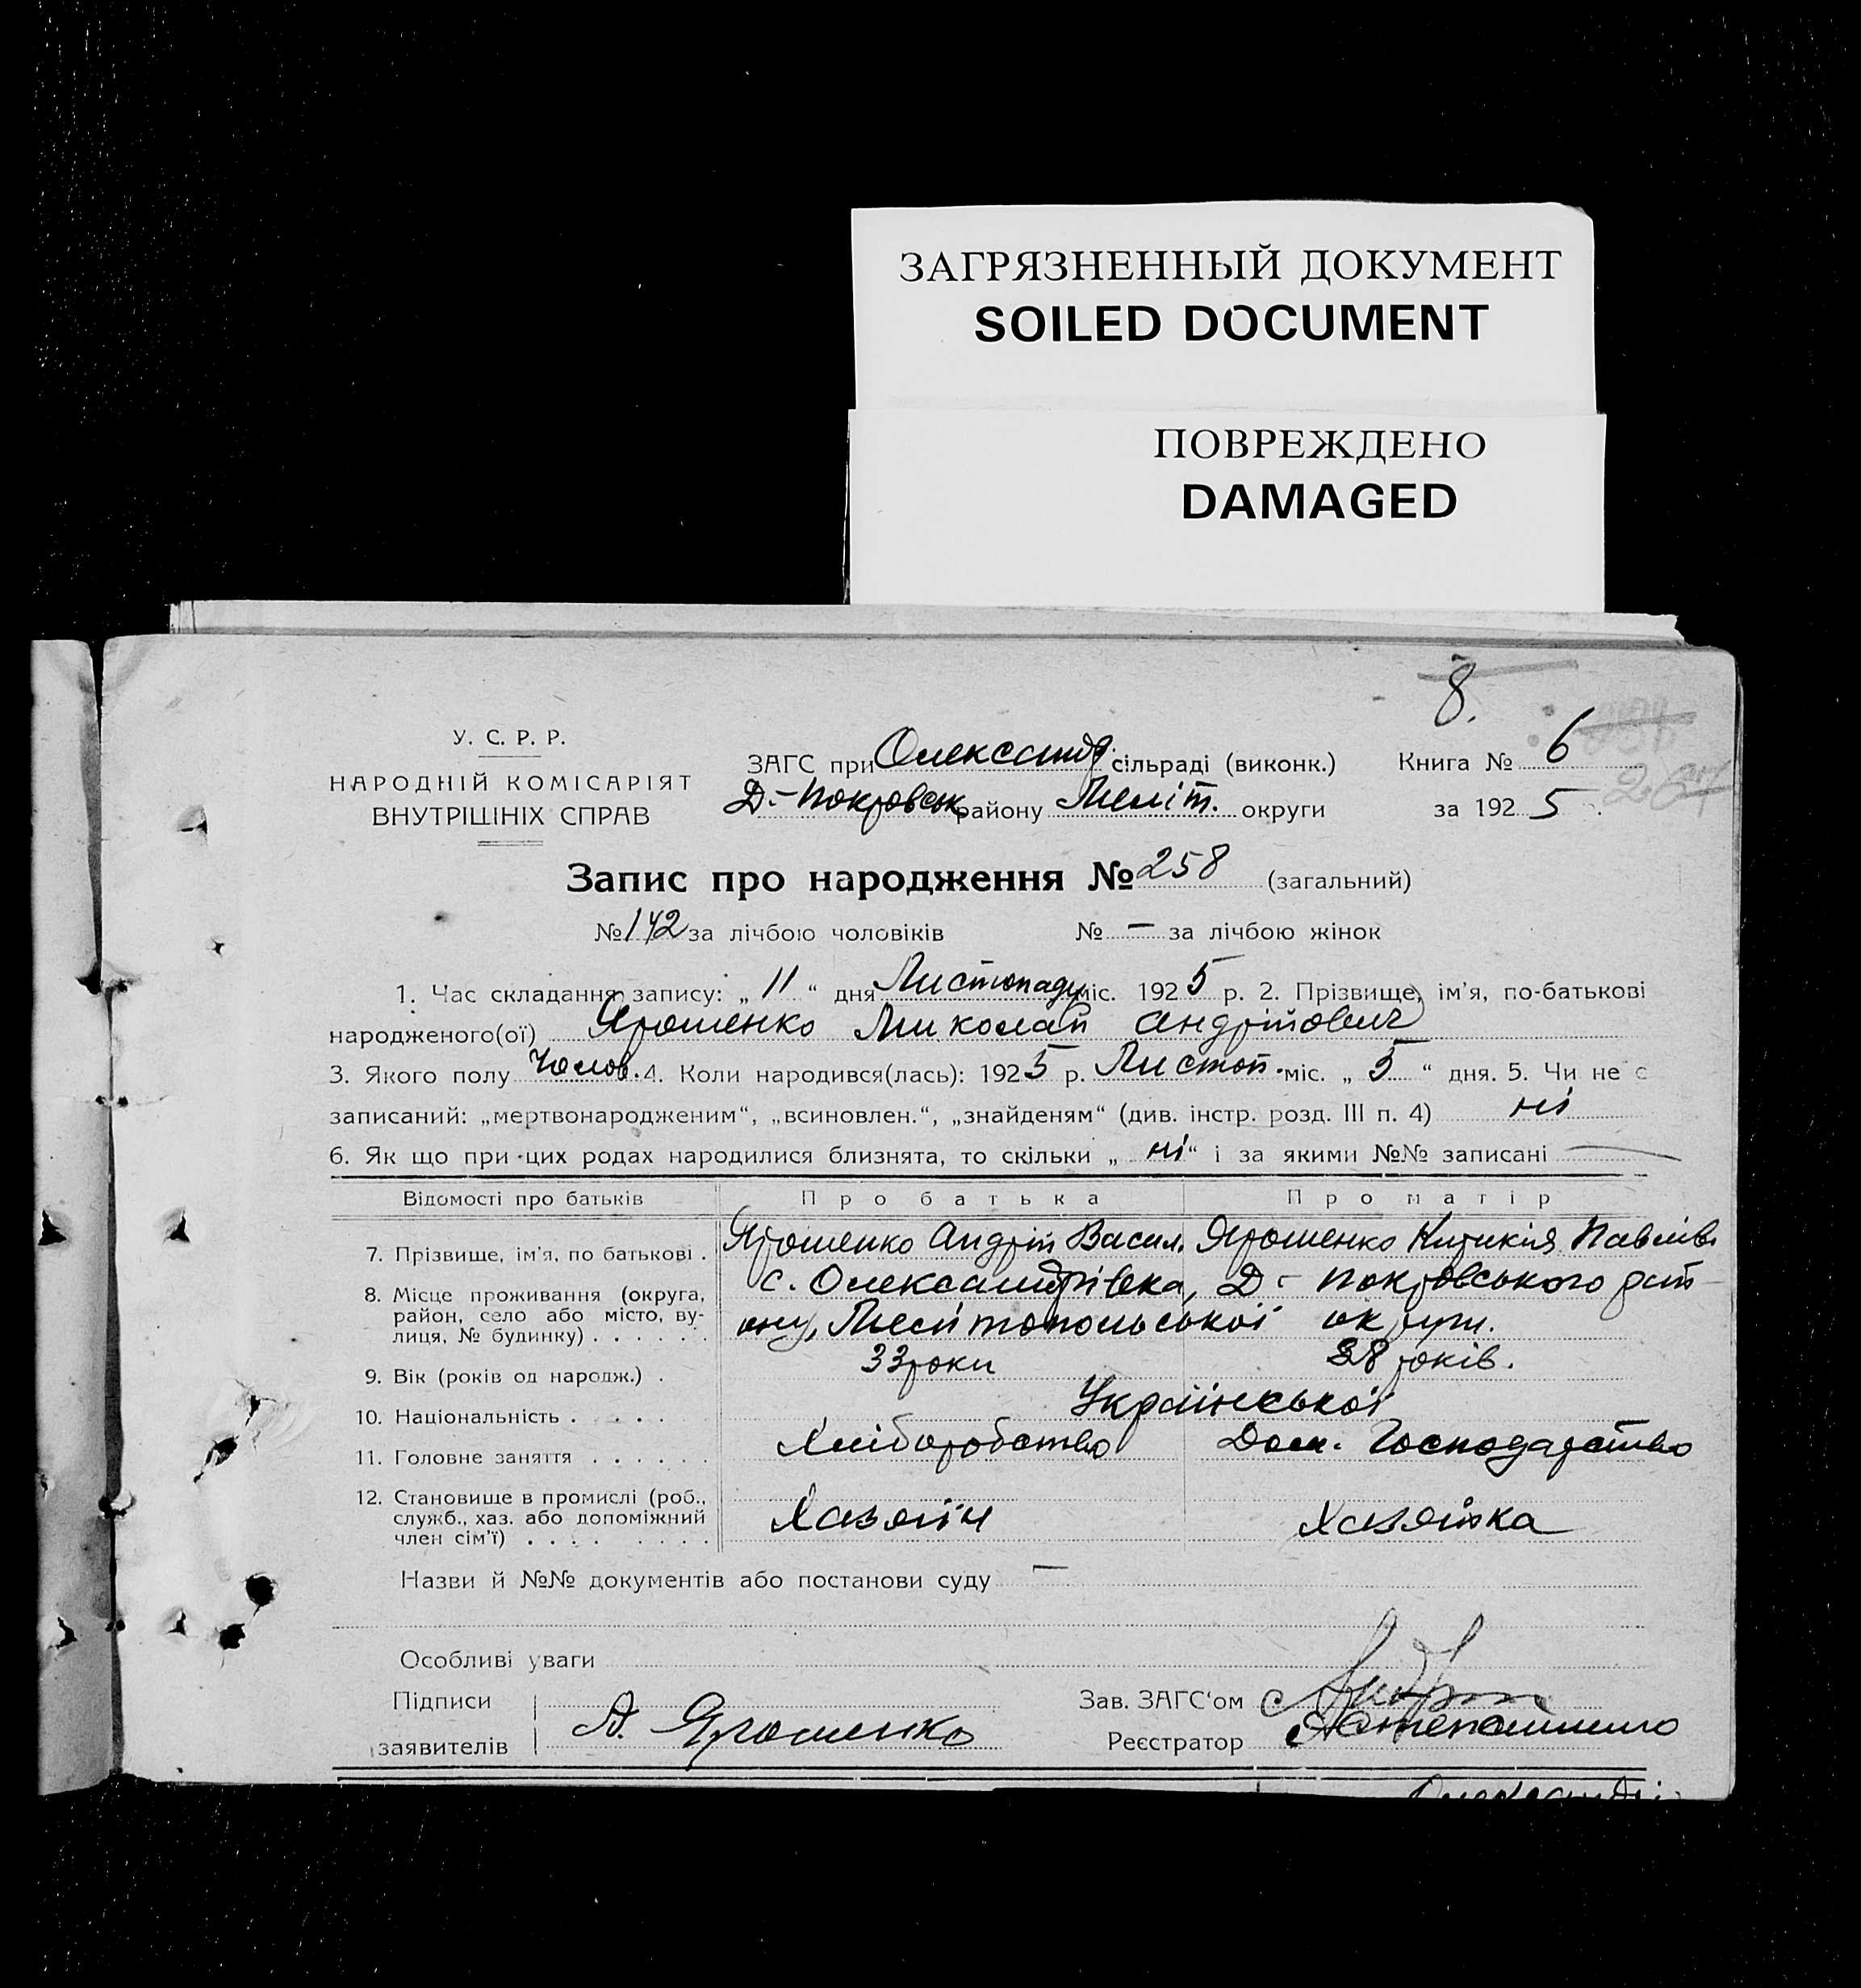 ЗАГРЯЗНЕННЫЙ ДОКУМЕНТ
SOILED DOCUMENT
ПОВРЕЖДЕНО
DAMAGED
8.
У. С. Р. Р.
НАРОДНІЙ КОМІСАРІЯТ
ВНУТРІШНІХ СПРАВ
ЗАГС при Олександ. сільраді (виконк.) Книга № 6
Д.-Покровськ району Меліт. округи за 192 5
Запис про народження № 258 (загальний)
№ 142 за лічбою чоловіків № — за лічбою жінок
1. Час складання запису: „ 11 “ дня Листопаду міс. 192 5 р. 2. Прізвище, ім’я, по-батькові
народженого(ої) Ярошенко Миколай Андрійович
3. Якого полу Чолов. 4. Коли народився(лась): 192 5 р. Листоп. міс. „ 5 “ дня. 5. Чи не є
записаний: „мертвонародженим“, „всиновлен.“, „знайденям“ (див. інстр. розд. III п. 4) ні
6. Як що при цих родах народилися близнята, то скільки „ ні “ і за якими №№ записані —
Відомості про батьків Про батька Про матір
7. Прізвище, ім’я, по батькові . Ярошенко Андрій Васил. Ярошенко Павлівн.
8. Місце проживання (округа, район, село або місто, вулиця, № будинку) . . . . . . с. Олександрівка, Д.- Покровського рай-
ону, Мелітопольської округи.
9. Вік (років од народж.) . 33 роки 38 років.
10. Національність . . . . Української
11. Головне заняття . . . . . . Хліборобство Дом. Господарство
12. Становище в промислі (роб., служб., хаз. або допоміжний член сім’ї) . . . . . . . . Хазяїн Хазяйка
Назви й №№ документів або постанови суду —
Особливі уваги
Підписи Зав. ЗАГС‘ом
заявителів А. Ярошенко Реєстратор